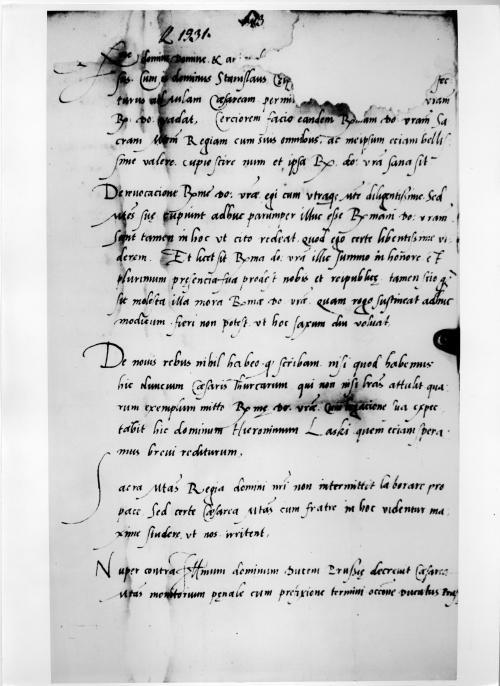 1531.
domine Domine & a
sus. Cum is dominus Stanislaus
turus ad Aulam Cæsaream permi vram
R. do. vadat, Certiorem facio eandem R.mam do. vram Sa
cram Mtem Regiam cum suis omnibus, ac meipsum eciam belliſ
sime valere, cupio scire num et ipsa R. do. vra sana sit
De revocacione R.me do. vræ egi cum utraque Mte diligentissime, Sed
Mtes suę cupiunt adhuc parumper illic esse R.mam do. vram
sunt tamen in hoc ut cito redeat, quod ego certe libentissime vi
derem. Et licet sit R.ma do. vra illic summo in honore et
plurimum presencia sua prodest nobis et reipublicę, tamen scio q
sit molesta illa mora R.mæ do. vræ, quam rogo sustineat adhuc
modicum, fieri non potest, ut hoc saxum diu volvat.
De novis rebus nihil habeo q scribam, nisi quod habemus
hic nuncium Cæsaris Thurcarum qui non nisi lras attulit qua
rum exemplum mitto R.mę do. vræ, sua expec
tabit hic dominum Hieronimum Laski, quem eciam spera
mus brevi rediturum,
Sacra Mtas Regia domini nri non intermittit laborare pro
pace, Sed certe Cæsarea Mtas cum fratre in hoc videntur ma
xime studere, ut nos irritent,
Nuper contra Illmum dominum Ducem Prussię decrevit Cæsarea
Mtas monitorium pęnale cum prefixione termini occone Ducatus